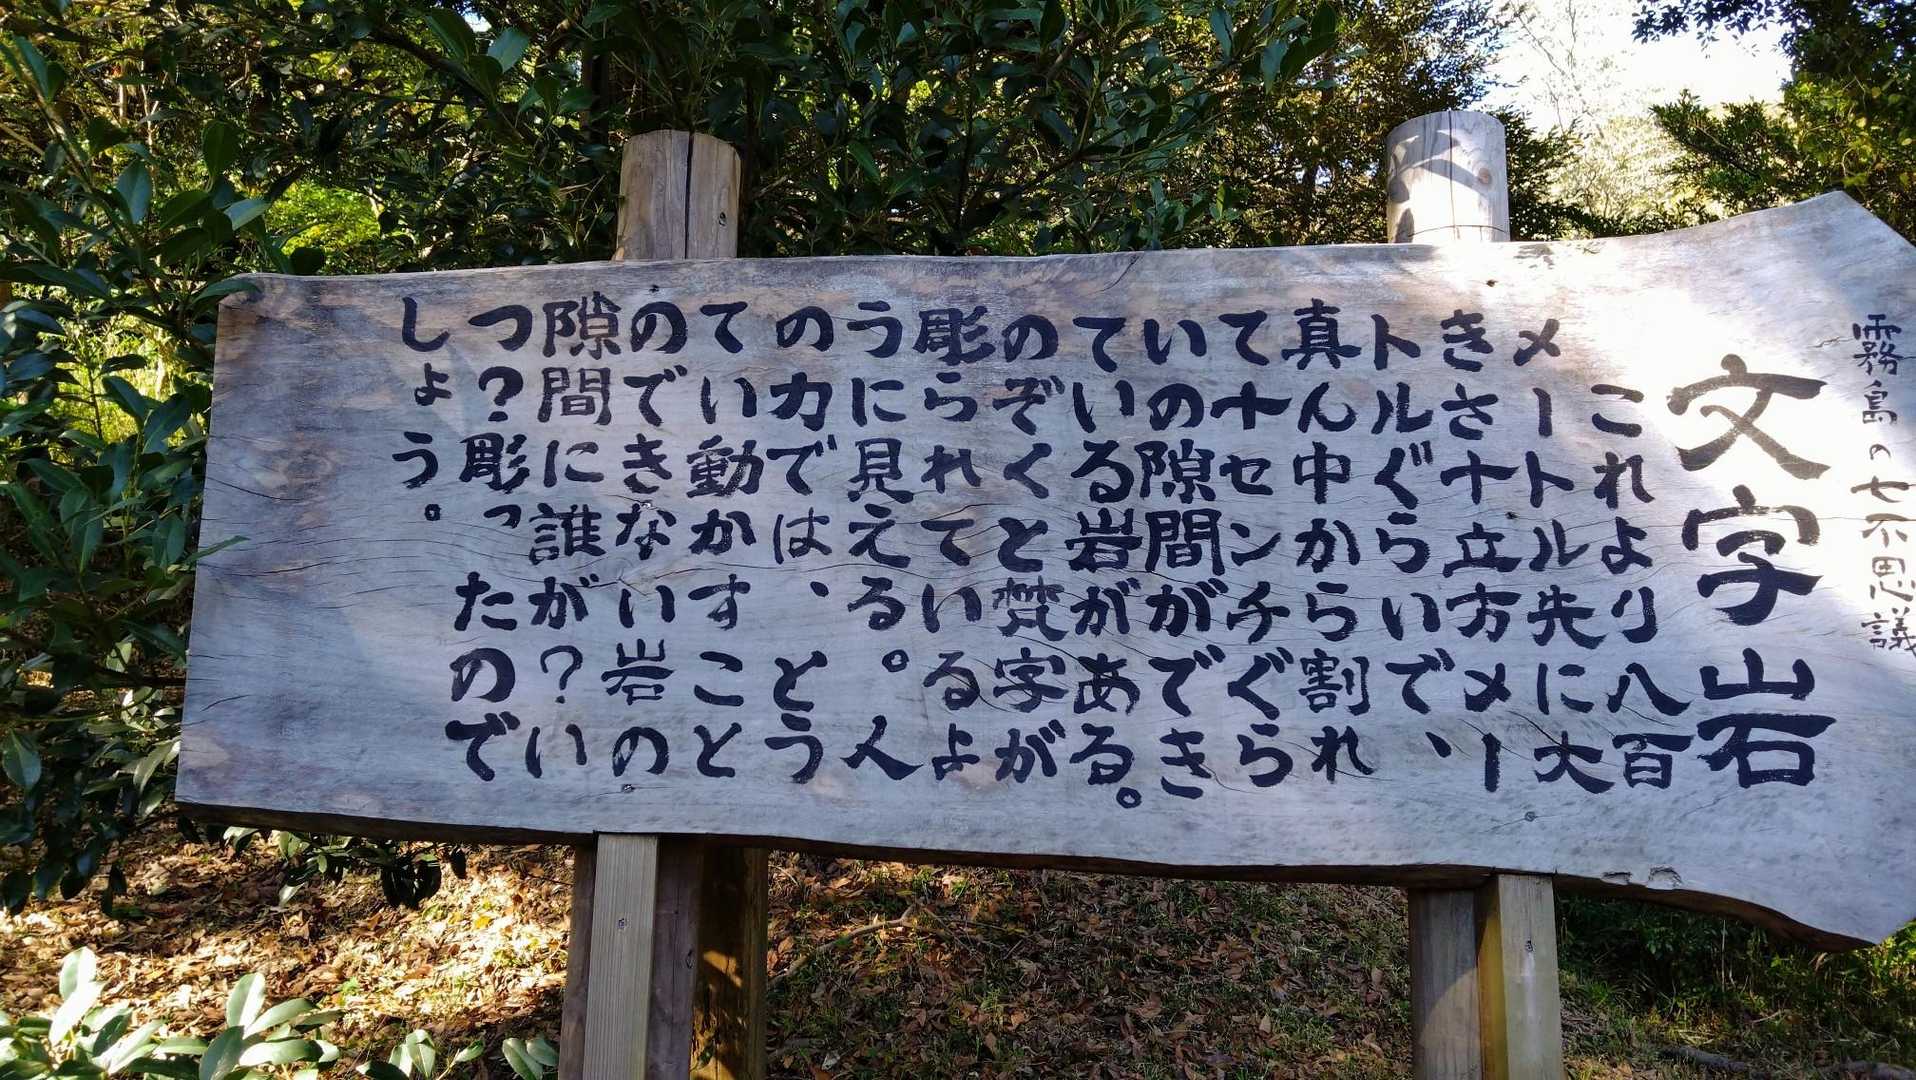 霧島の七不思議
文字岩
これより八百
メートル先に大
きさ十立方メー
トルぐらいで、
真ん中から割れ
て十センチぐら
いの隙間ができ
ている岩がある。
のぞくと梵字が
彫られているよ
うに見える。人
の力では、とう
てい動かすこと
のできない岩の
隙間に誰が?い
つ?彫ったので
しょう。